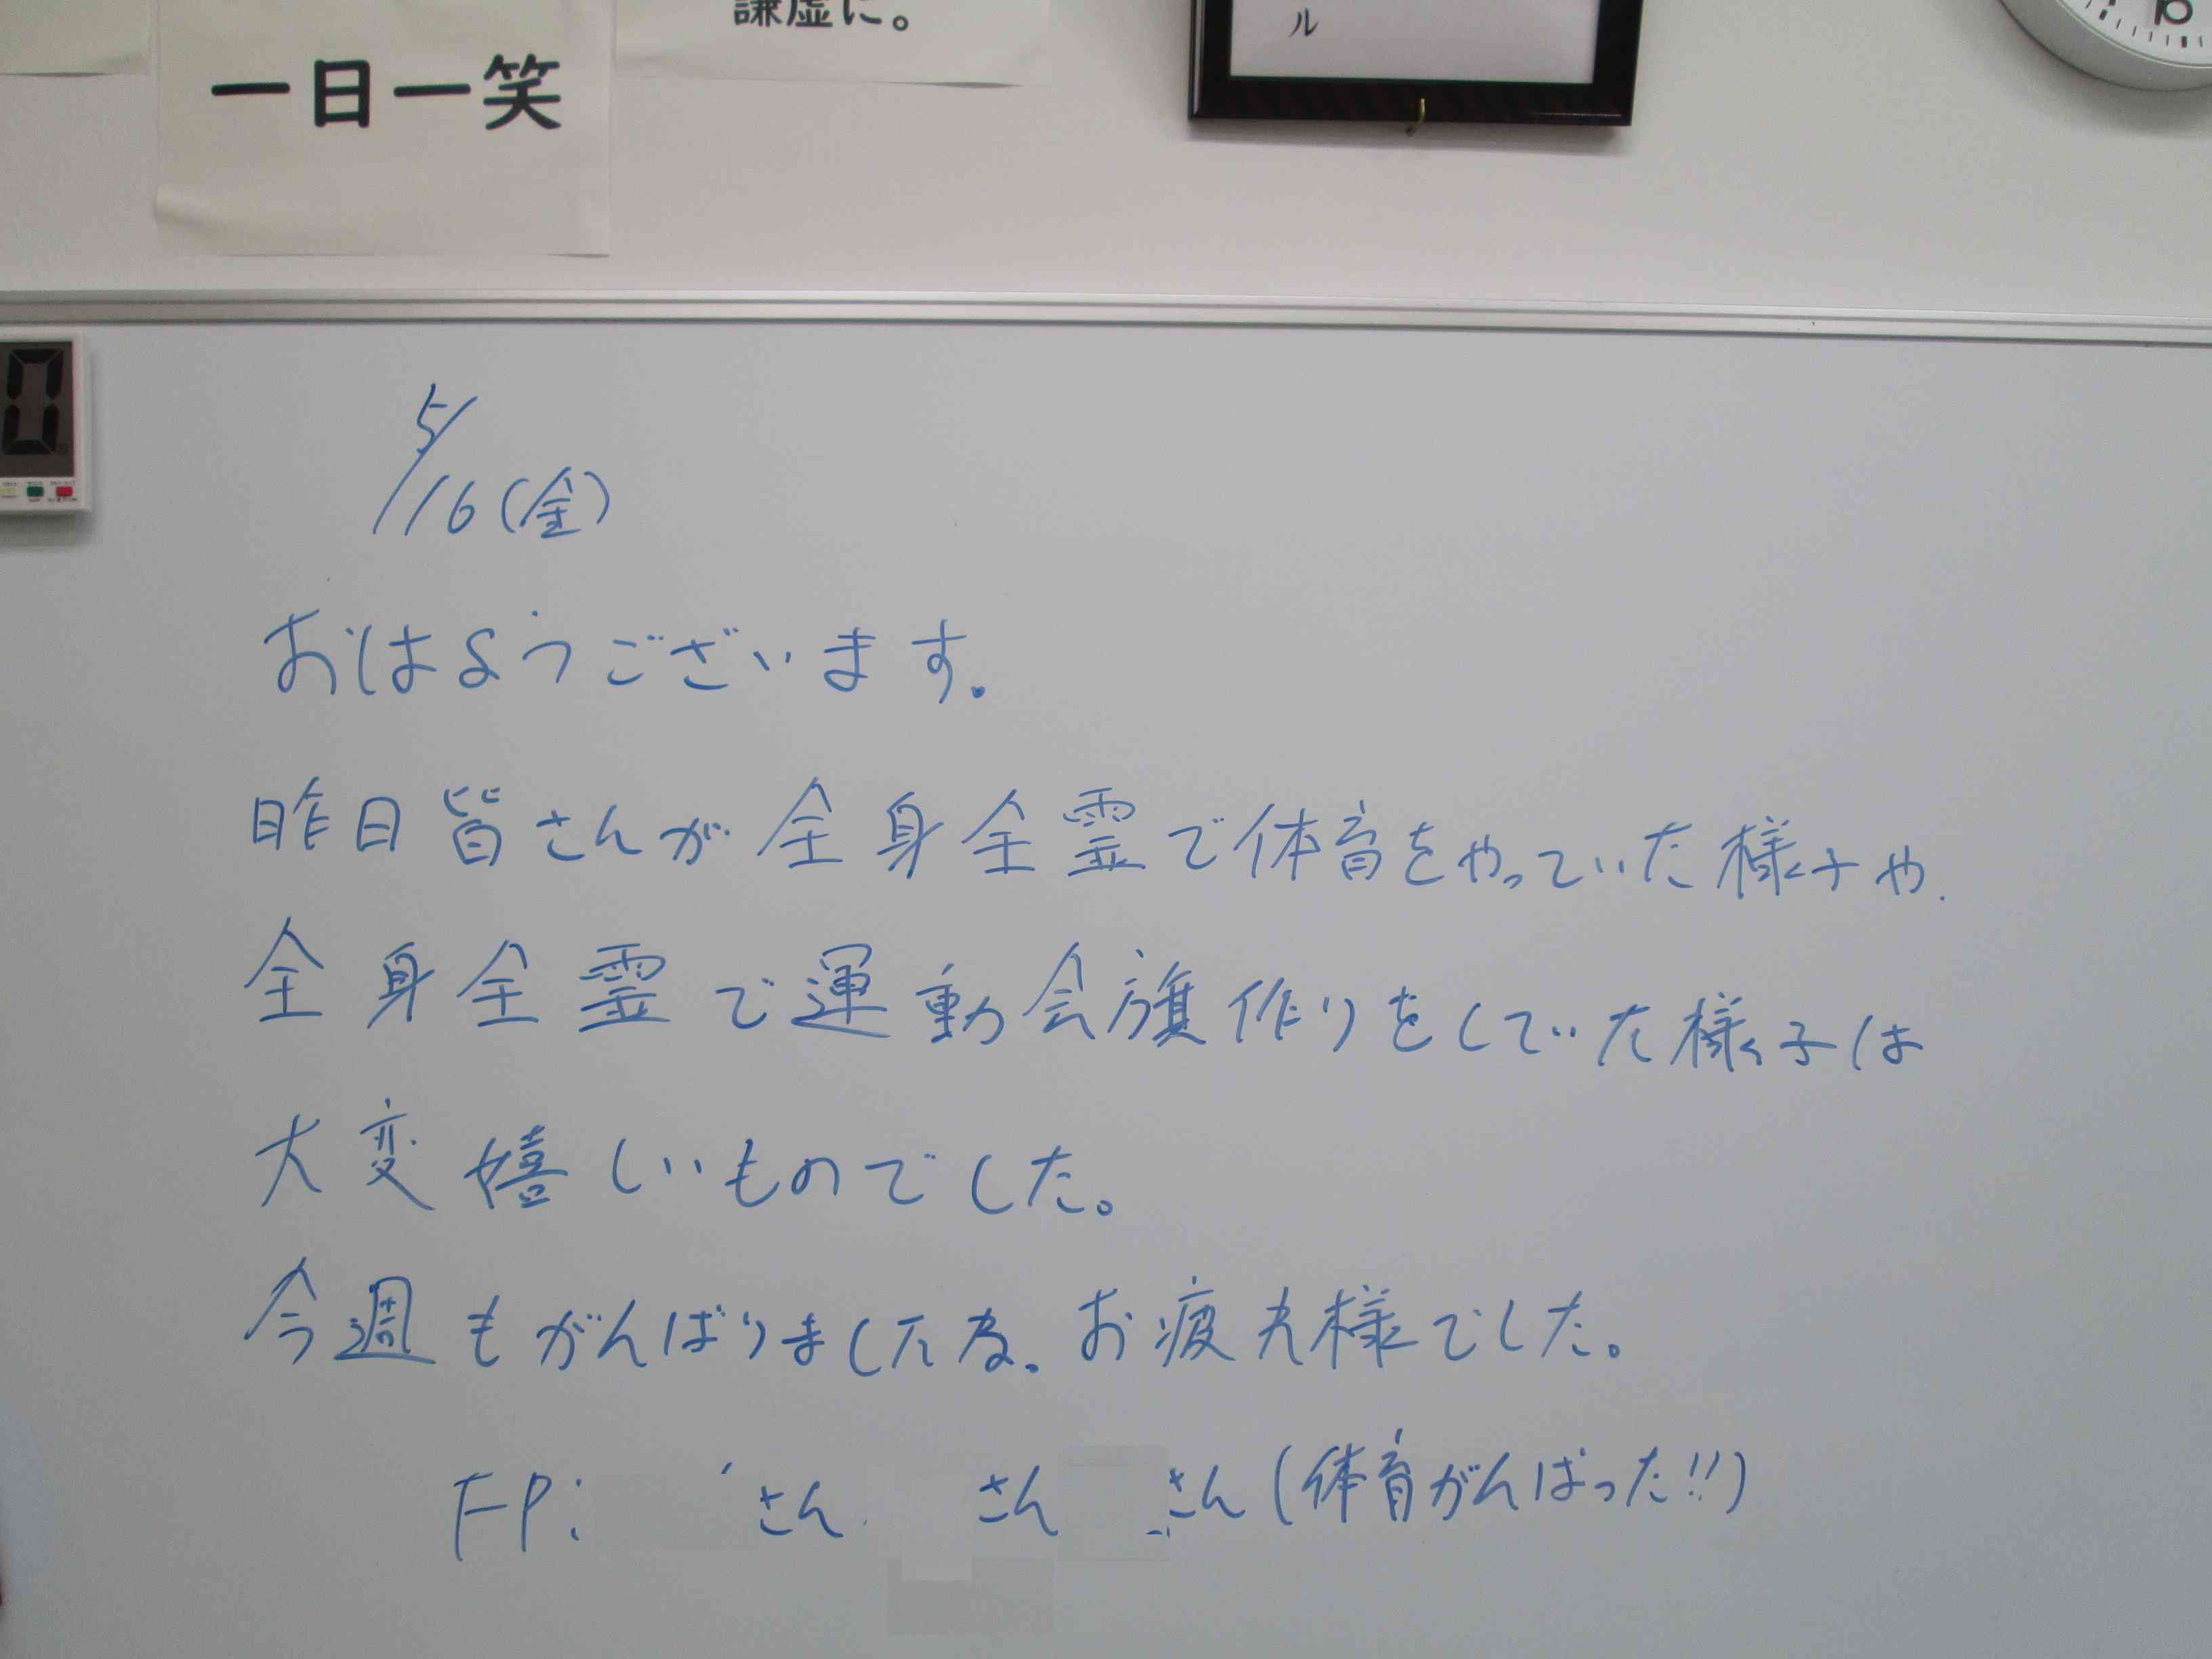 謙虚に。
一日一笑
ル
5/16(金)
おはようございます。
昨日皆さんが全身全霊で体育をやっていた様子や、
全身全霊で運動会旗作りをしていた様子は
大変嬉しいものでした。
今週もがんばりましたね。お疲れ様でした。
FP: さん さん さん(体育がんばった!!)